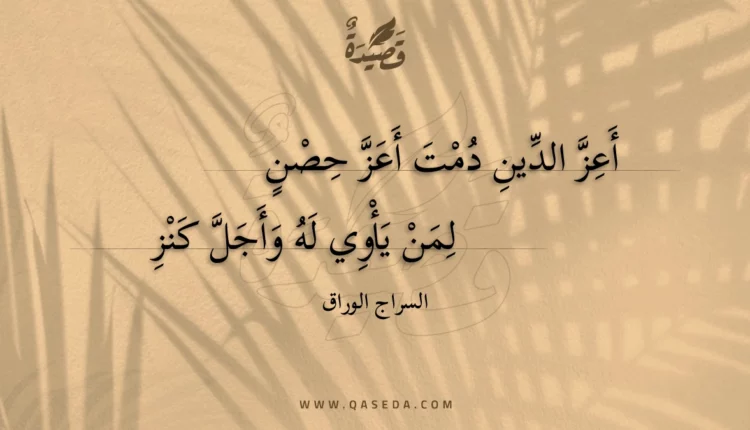 قَصِيْدَةٌ
أَعِزَّ الدِّينِ دُمْتَ أَعَزَّ حِصْنٍ
لِمَنْ يَأْوِي لَهُ وَأَجَلَّ كَنْزِ
السراج الوراق
WWW.QASEDA.COM